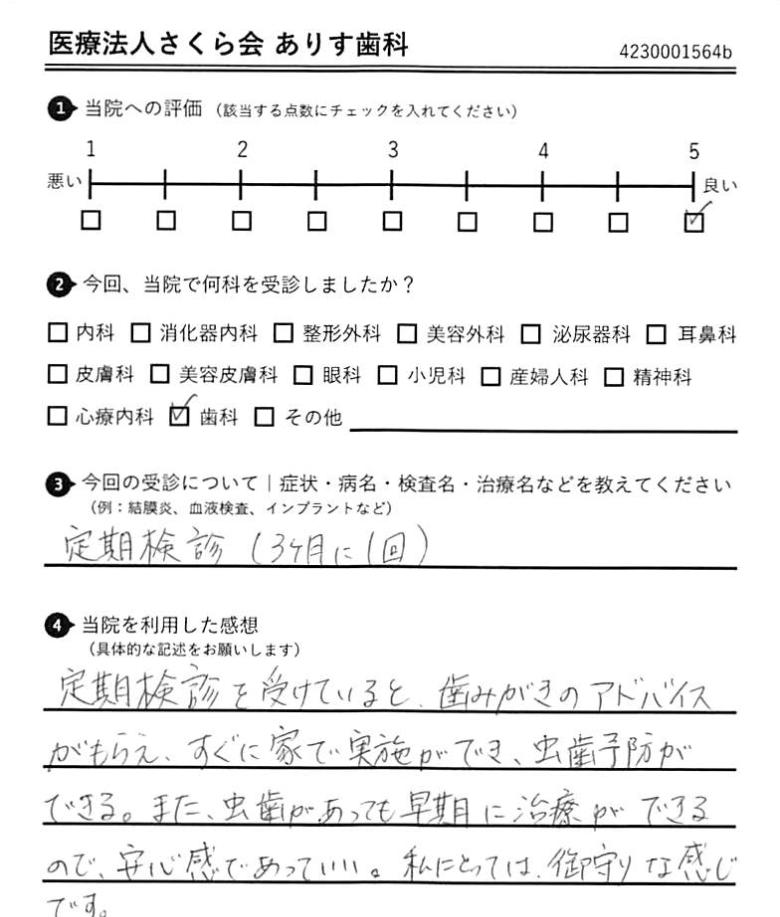 医療法人さくら会 ありす歯科
4230001564b
1 当院への評価 (該当する点数にチェックを入れてください)
1 2 3 4 5
悪い 良い
2 今回、当院で何科を受診しましたか？
内科 消化器内科 整形外科 美容外科 泌尿器科 耳鼻科
皮膚科 美容皮膚科 眼科 小児科 産婦人科 精神科
心療内科 歯科 その他
3 今回の受診について｜症状・病名・検査名・治療名などを教えてください
(例：結膜炎、血液検査、インプラントなど)
定期検診 (3ヶ月に1回)
4 当院を利用した感想
(具体的な記述をお願いします)
定期検診を受けていると、歯みがきのアドバイス
がもらえ、すぐに家で実施ができ、虫歯予防が
できる。また、虫歯があっても早期に治療ができる
ので、安心感であっていい。私にとっては、御守りな感じ
です。